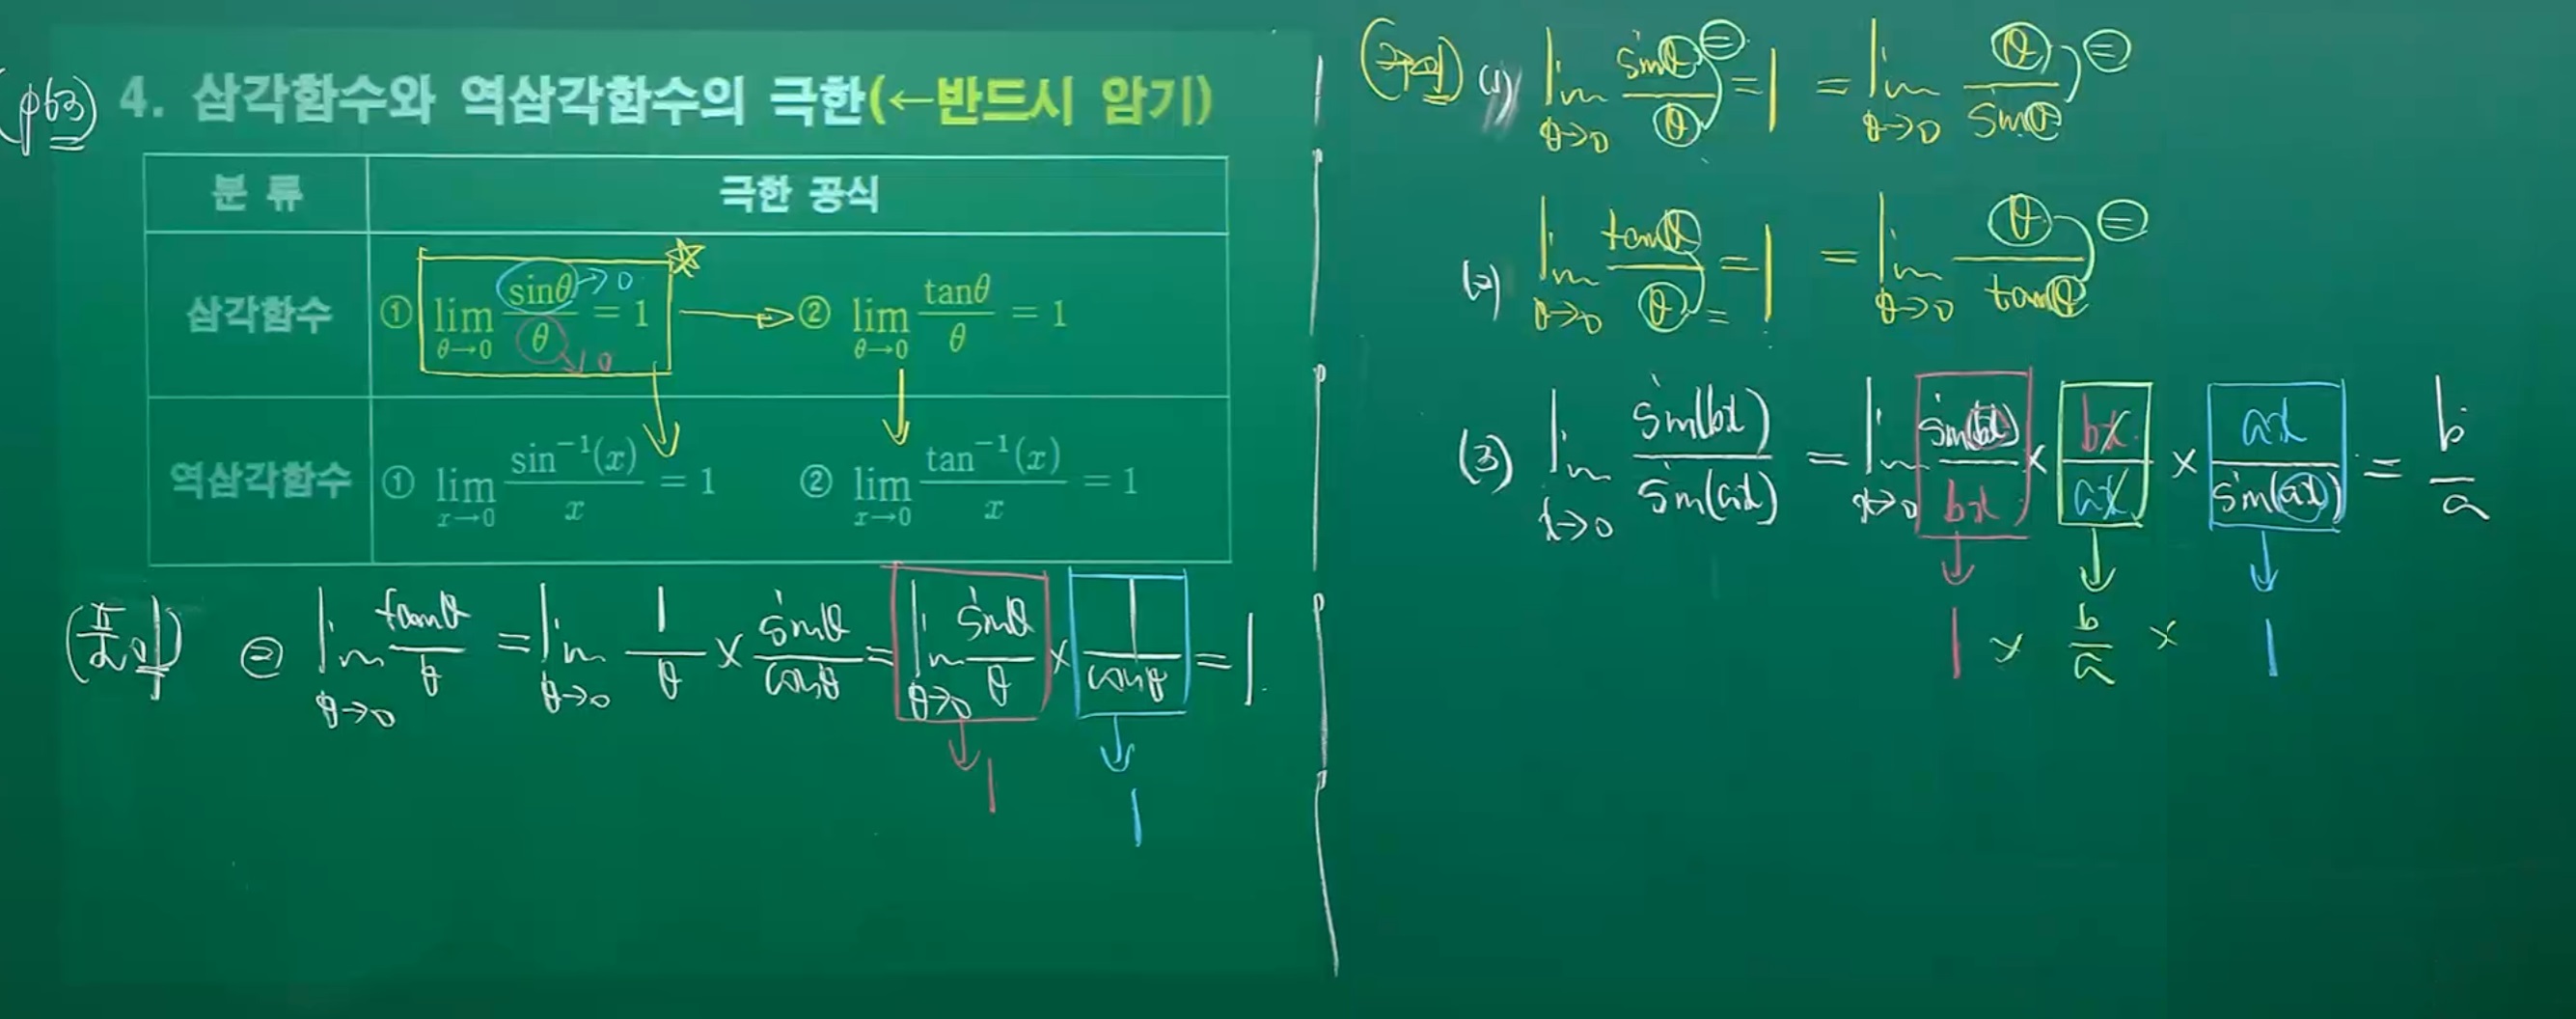 (p63) 4. 삼각함수와 역삼각함수의 극한(←반드시 암기)
분 류 극한 공식
삼각함수 ① lim θ→0 sinθ/θ = 1 ② lim θ→0 tanθ/θ = 1
→0
↘0
역삼각함수 ① lim x→0 sin⁻¹(x)/x = 1 ② lim x→0 tan⁻¹(x)/x = 1
② lim θ→0 tanθ/θ = lim θ→0 1/θ × sinθ/cosθ = lim θ→0 sinθ/θ × 1/cosθ = 1
1 1
(1) lim θ→0 sinθ/θ = 1 = lim θ→0 θ/sinθ
(2) lim θ→0 tanθ/θ = 1 = lim θ→0 θ/tanθ
(3) lim x→0 sin(bx)/sin(ax) = lim x→0 sin(bx)/bx × bx/ax × ax/sin(ax) = b/a
1 × b/a × 1